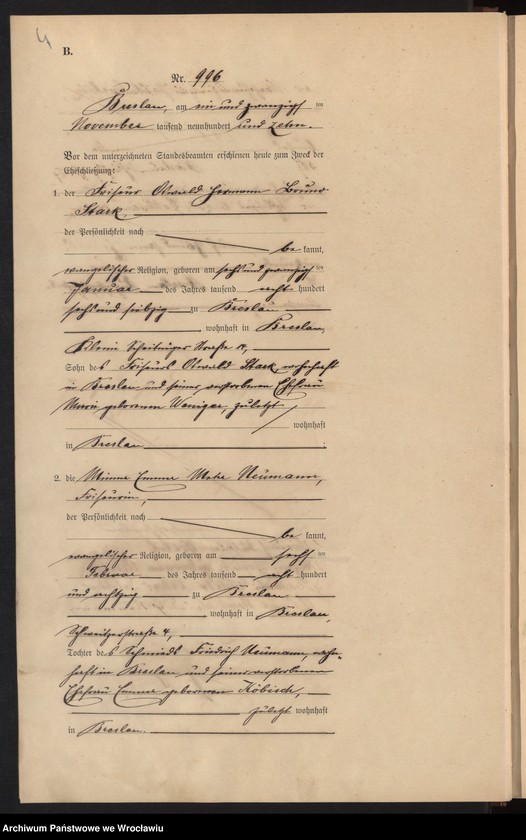 4
B.
Nr. 996
Breslau, am ein und zwanzigsten
November tausend neunhundert und zehn.
Vor dem unterzeichneten Standesbeamten erschienen heute zum Zweck der
Eheschließung:
1. der Friseur Oswald Hermann Bruno
Stark
der Persönlichkeit nach
be kannt,
evangelischer Religion, geboren am sechs und zwanzigsten
Januar des Jahres tausend acht hundert
sechs und siebzig zu Breslau
, wohnhaft in Breslau,
Kleine Scheitniger Straße
Sohn des Friseurs Oswald Stark, wohnhaft
in Breslau und seiner verstorbenen Ehefrau
Marie geborenen Weniger, zuletzt
wohnhaft
in Breslau ;
2. die Emma Neumann,
Friseurin,
der Persönlichkeit nach
be kannt,
evangelischer Religion, geboren am sechs ten
Februar des Jahres tausend acht hundert
und achtzig zu Breslau
, wohnhaft in Breslau,
Schweitzerstraße 4,
Tochter des Schmieds Friedrich Neumann, wohn-
haft in Breslau und seiner verstorbenen
Ehefrau Emma geborenen Köbisch,
zuletzt wohnhaft
in Breslau.
Archiwum Państwowe we Wrocławiu